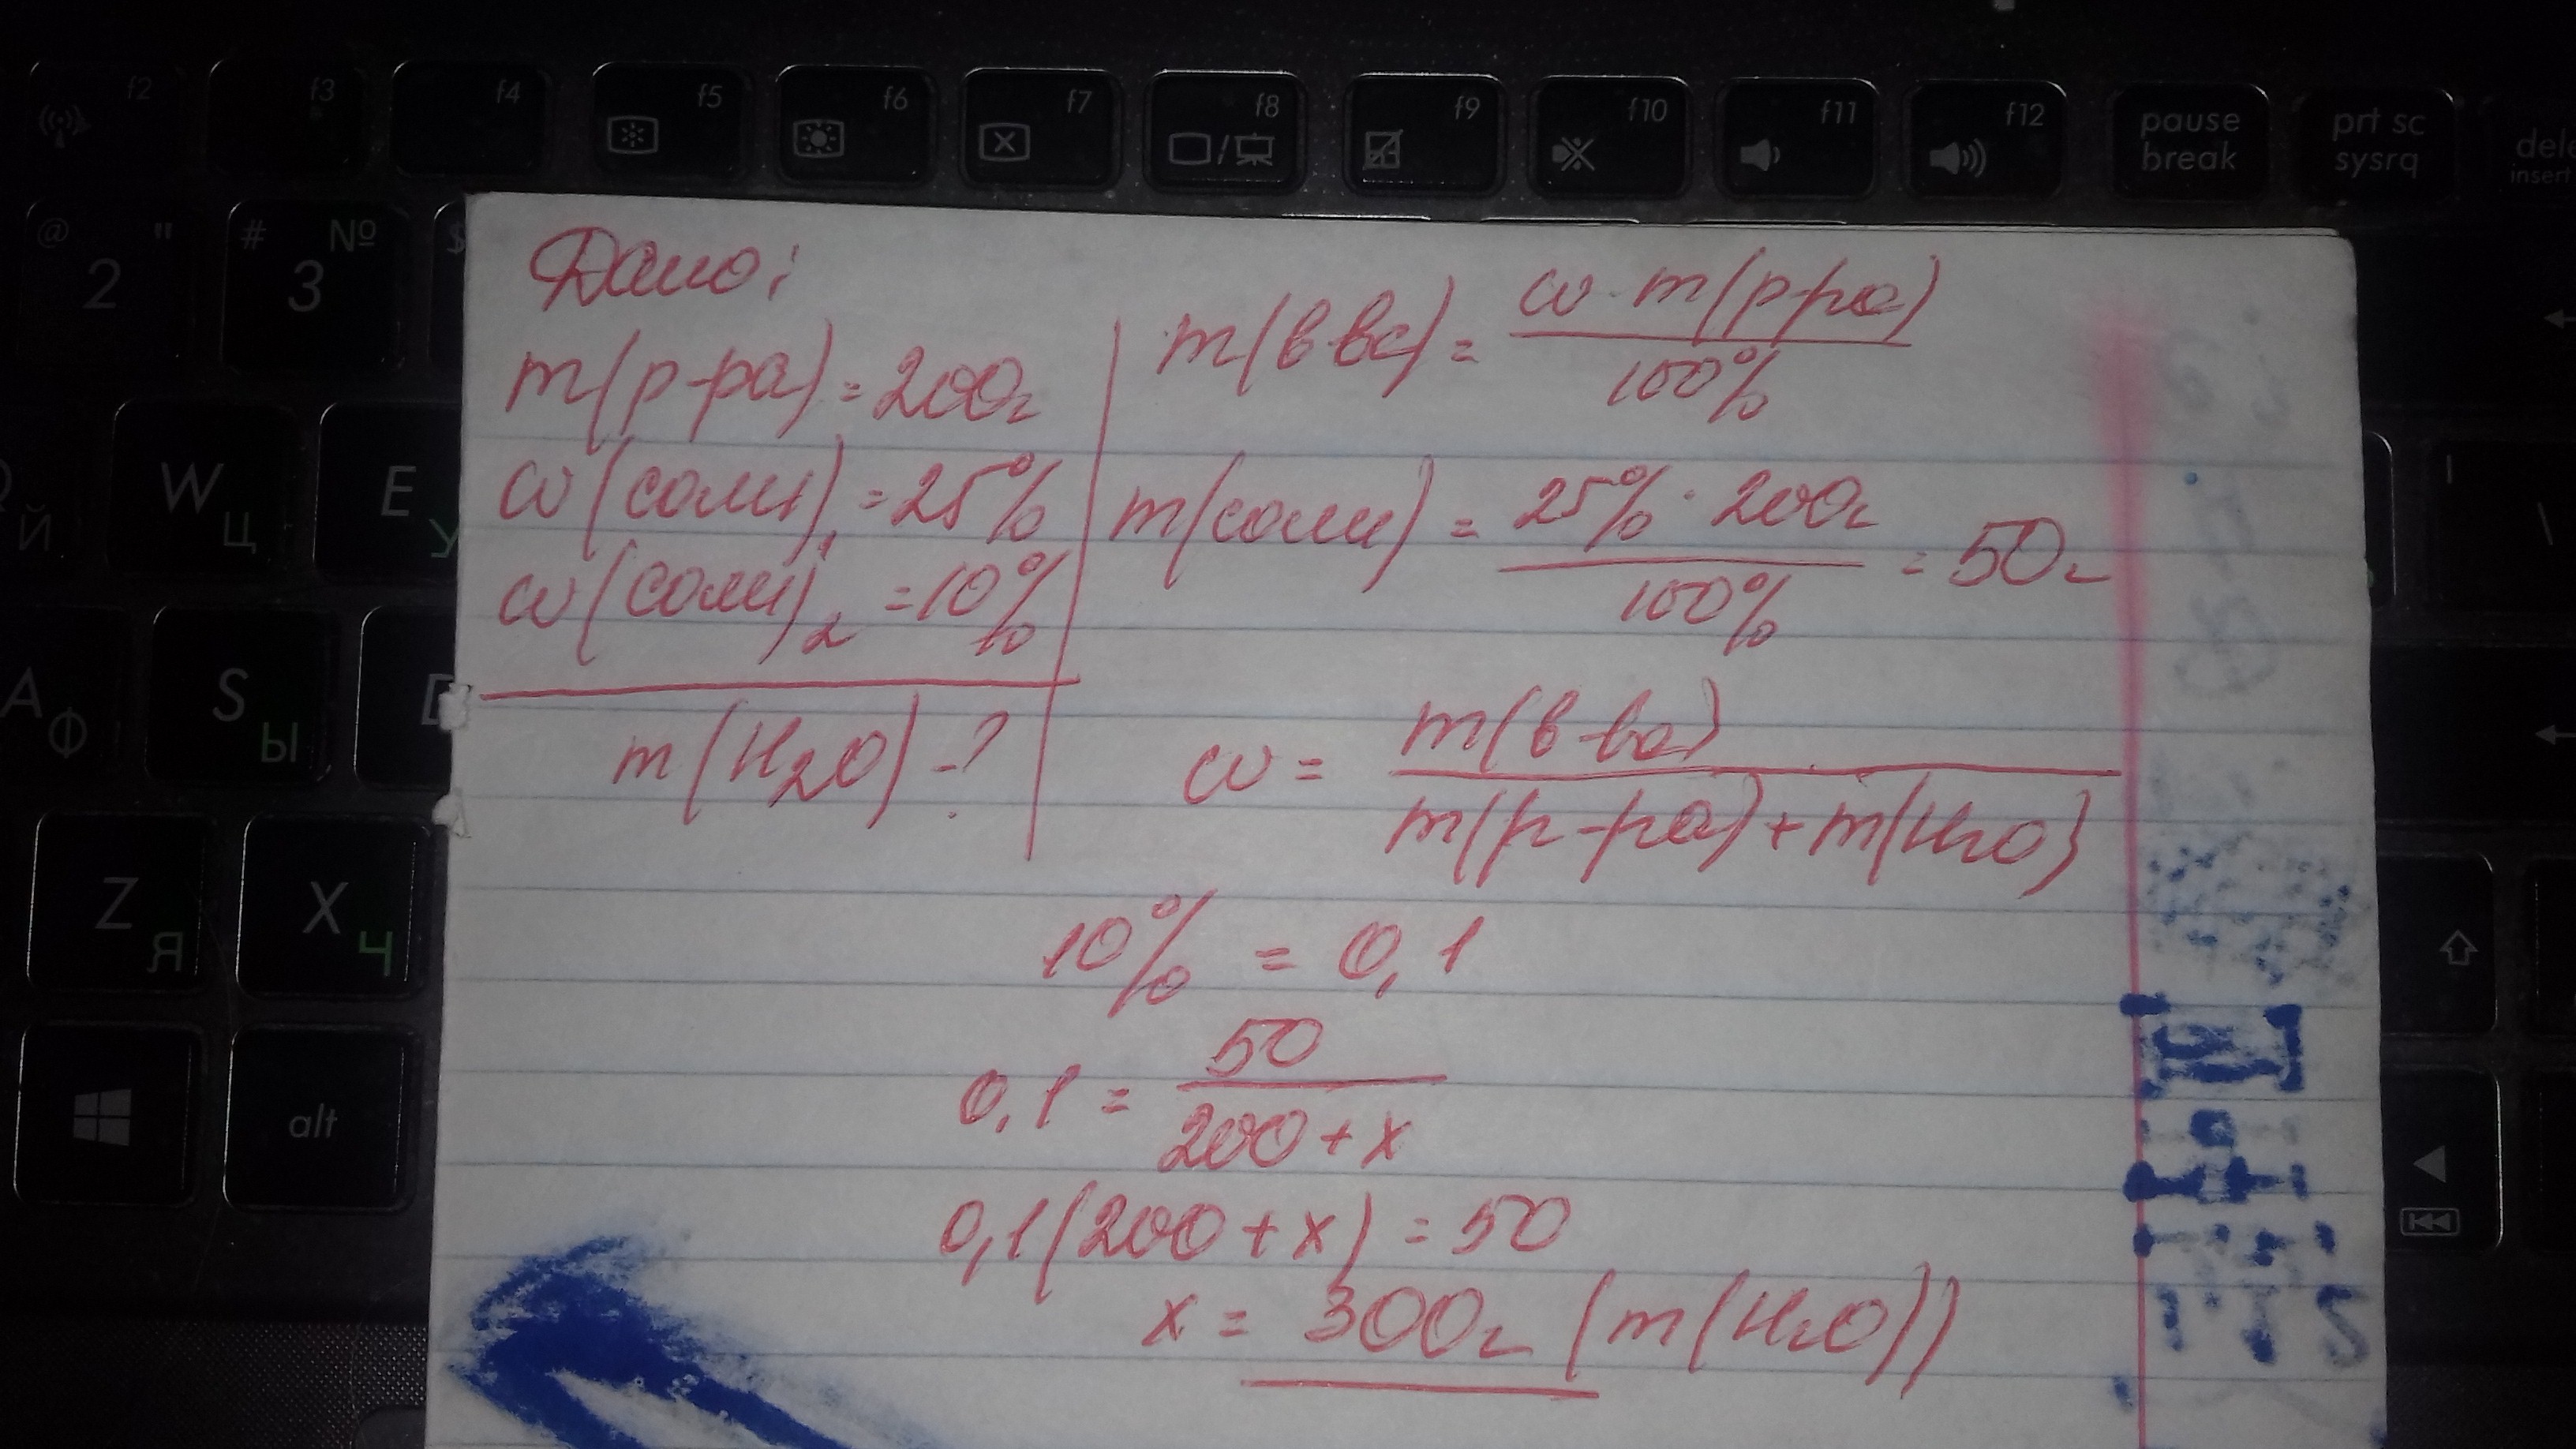 f2 f3 f4 f5 f6 f7 f8 f9 f10 f11 f12 pause break prt sc sysrq dele insert
@ " 2 # № 3 $
W Ц E У Й
A Ф S Ы
Z Я X Ч
alt
Дано:
m(р-ра) = 200г
ω(соли)₁ = 25%
ω(соли)₂ = 10%
m(H₂O) - ?
m(в-ва) = ω · m(р-ра) / 100%
m(соли) = 25% · 200г / 100% = 50г
ω = m(в-ва) / m(р-ра) + m(H₂O)
10% = 0,1
0,1 = 50 / 200 + x
0,1(200 + x) = 50
x = 300г (m(H₂O))